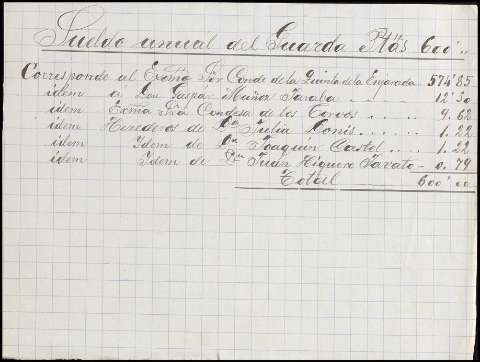 Sueldo anual del Guarda Ptas 600'..
Corresponde al Excmo Sor Conde de la Quinta de la Enjarada 574'85
idem a Don Gaspar Muñoz Taraba . . . 12'30
idem Excma Sra Condesa de los Corvos . . . . . 9.62
idem Herederos de Dn Julio Donis . . . . 1.22
idem Idem de Dn Joaquin Castel . . . . 1.22
idem Idem de Dn Juan Higuero Tavato - 0.79
Total 600'00